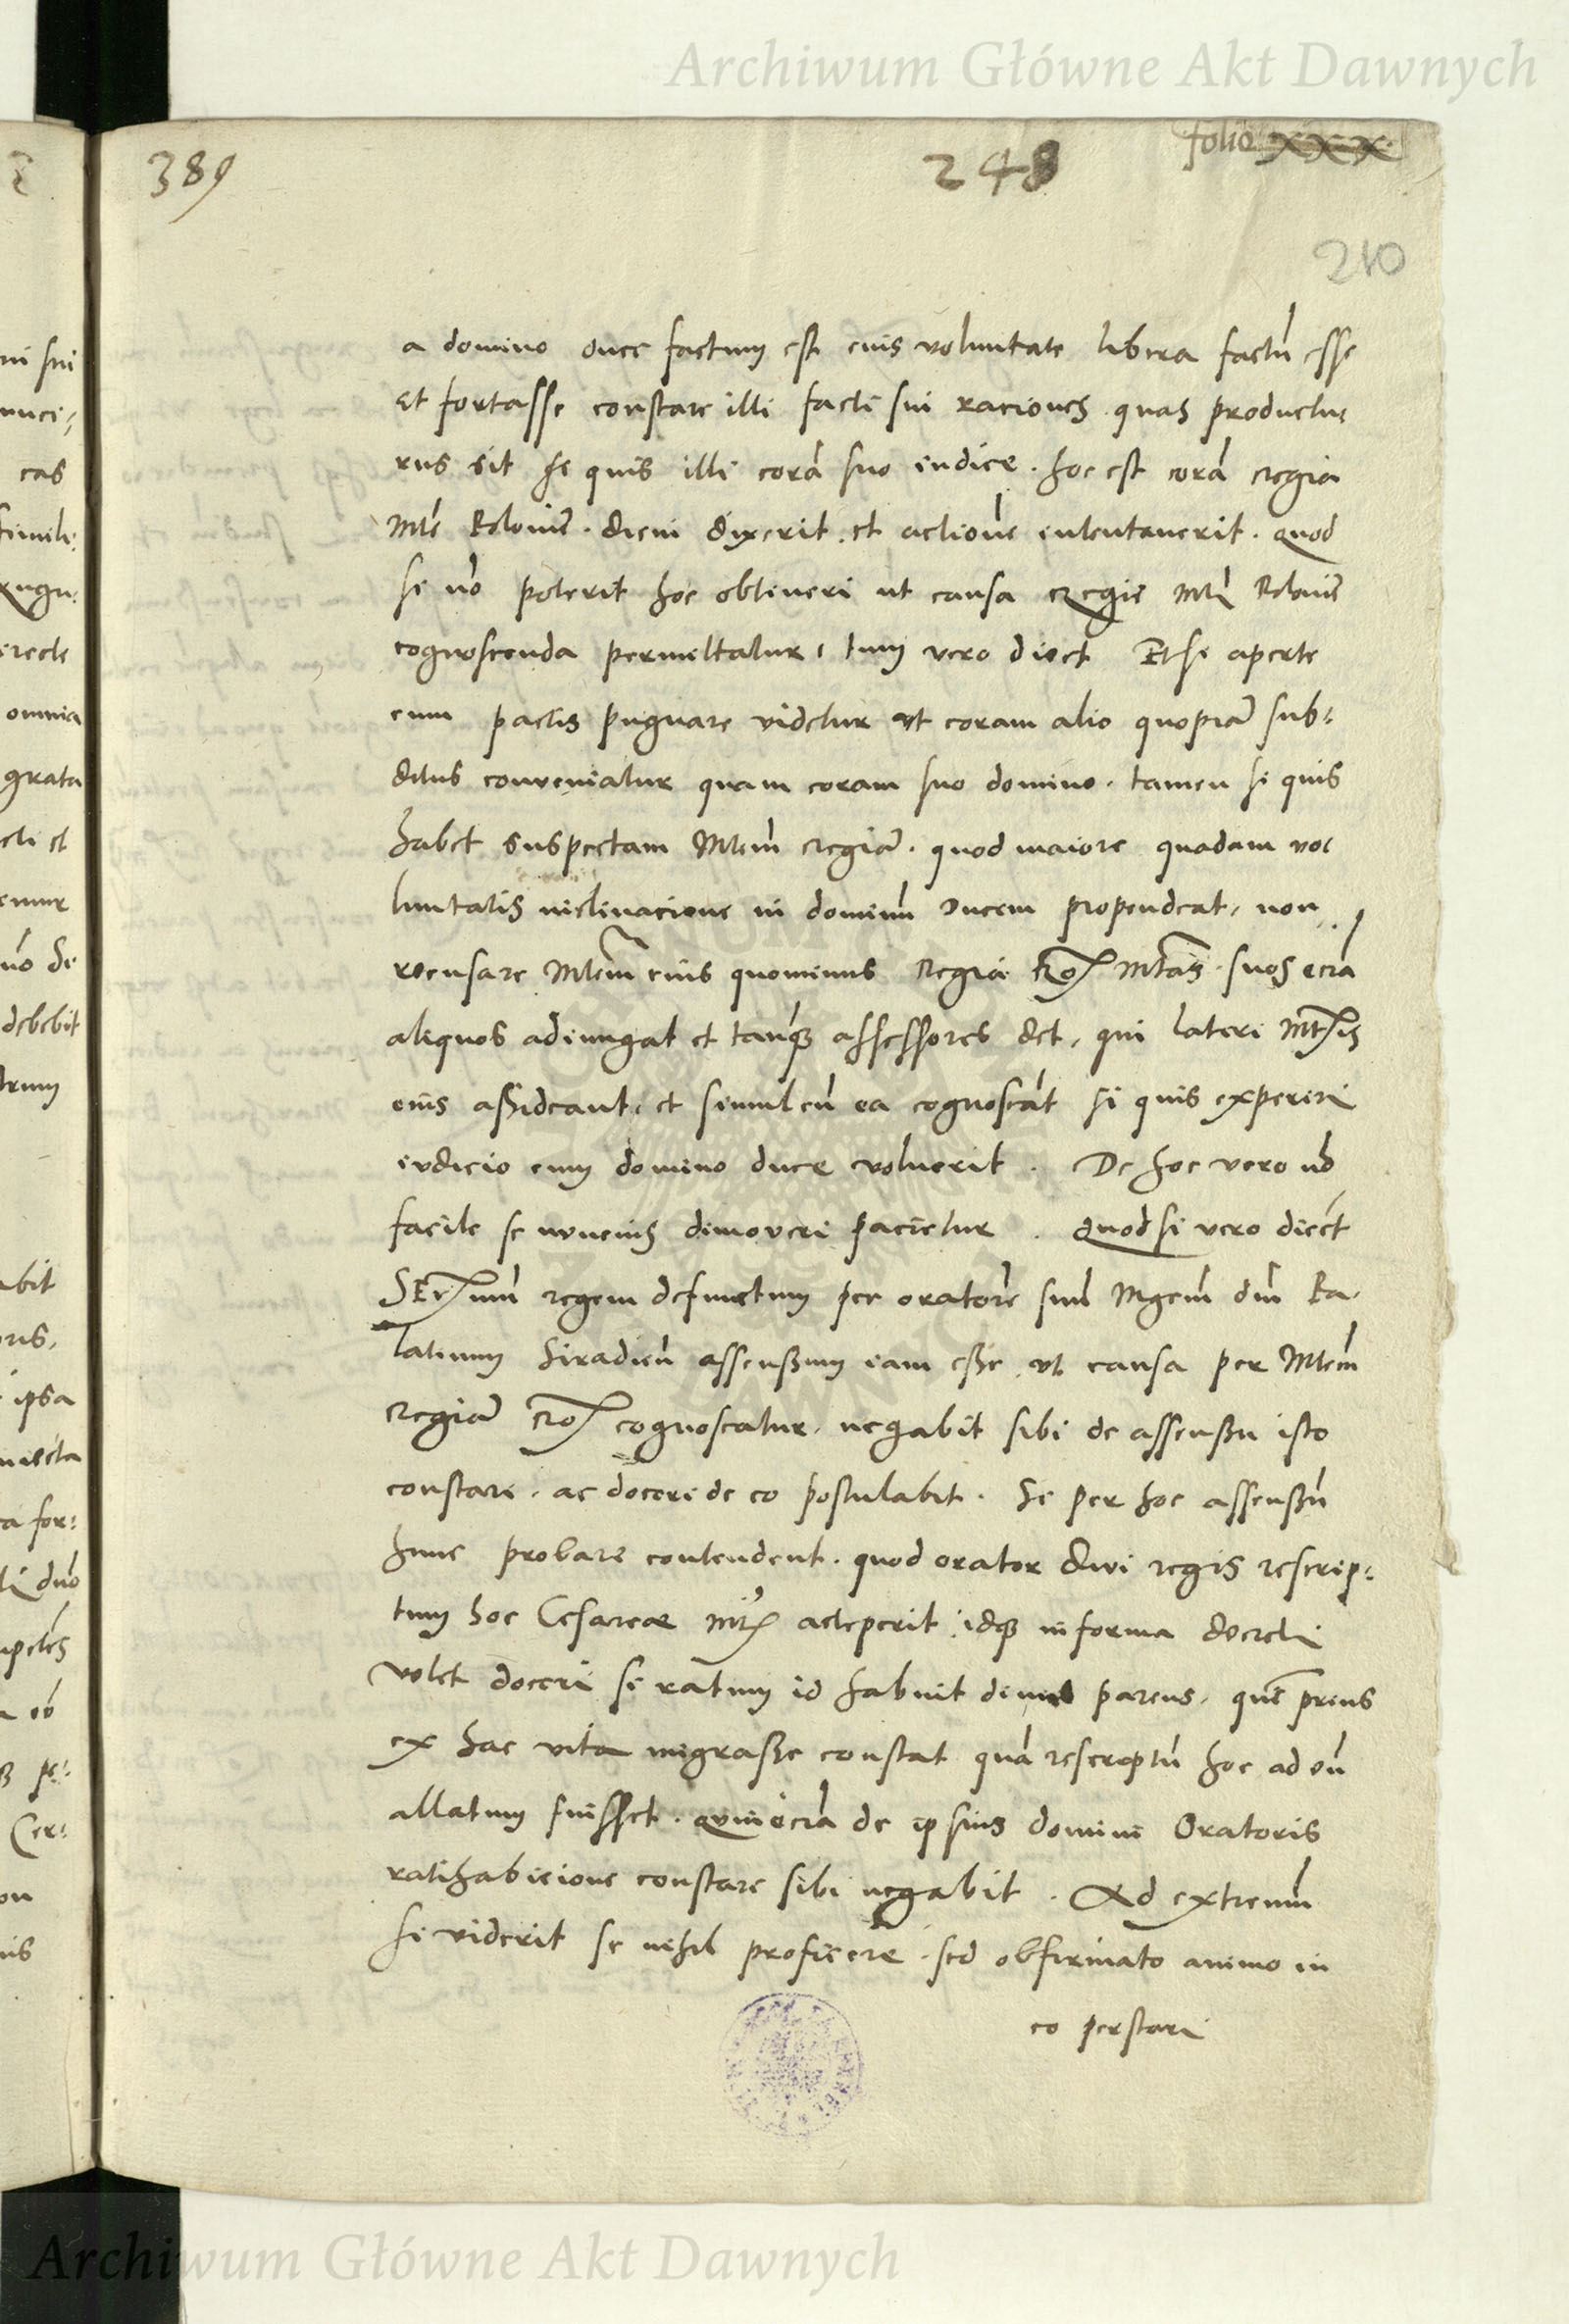 Archiwum Główne Akt Dawnych
389
248
folio xxx
210
a domino duce factum est eius voluntate libera factũ esse
et fortasse constare illi facti sui raciones quas productu
rus sit si quis illi corã suo iudice. hoc est corã regia
Mte Poloniẽ. diem dixerit. et actionẽ intentaverit. Quod
si nõ poterit hoc obtineri ut causa Regiẽ Mti Poloniẽ
cognoscenda permittatur, tum vero dicet Etsi aperte
cum pactis pugnare videtur ut coram alio quopiã sub:
ditus conveniatur quam coram suo domino. tamen si quis
habet suspectam Mtem regiã. quod maiore quadam vo
luntatis inclinacione in dominũ ducem propendeat, non
recusare Mtem eius quominus Regia Ro Mtas. suos eciã
aliquos adiungat et tanq̃ assessores det, qui lateri Mtis
eius assideant, et simul cũ ea cognoscãt si quis experiri
iudicio cum domino duce voluerit. De hoc vero nõ
facile se inveniẽs dimoveri pacietur. Quod si vero dicẽt
Sermum regem defunctum per oratorẽ suũ Mgcm dm̃ Pa.
latinum Siradieñ assensum iam esse, ut causa per Mtem
Regiã Ro cognoscatur. negabit sibi de assensu isto
constare. ac doceri de eo postulabit. Si per hoc assensũ
hunc probare contendent. quod orator divi regis rescrip:
tum hoc Cesareae Mtis acceperit, idq̃ in forma decreti
volet doceri si ratum id habuit divus parens, quẽ prius
ex hac vita migrasse constat quã rescriptũ hoc ad eũ
allatum fuisset. Quin eciã de ipsius domini Oratoris
ratihabicione constare sibi negabit. Ad extremũ
si viderit se nihil proficere. sed obfirmato animo in
eo perstari
Archiwum Główne Akt Dawnych